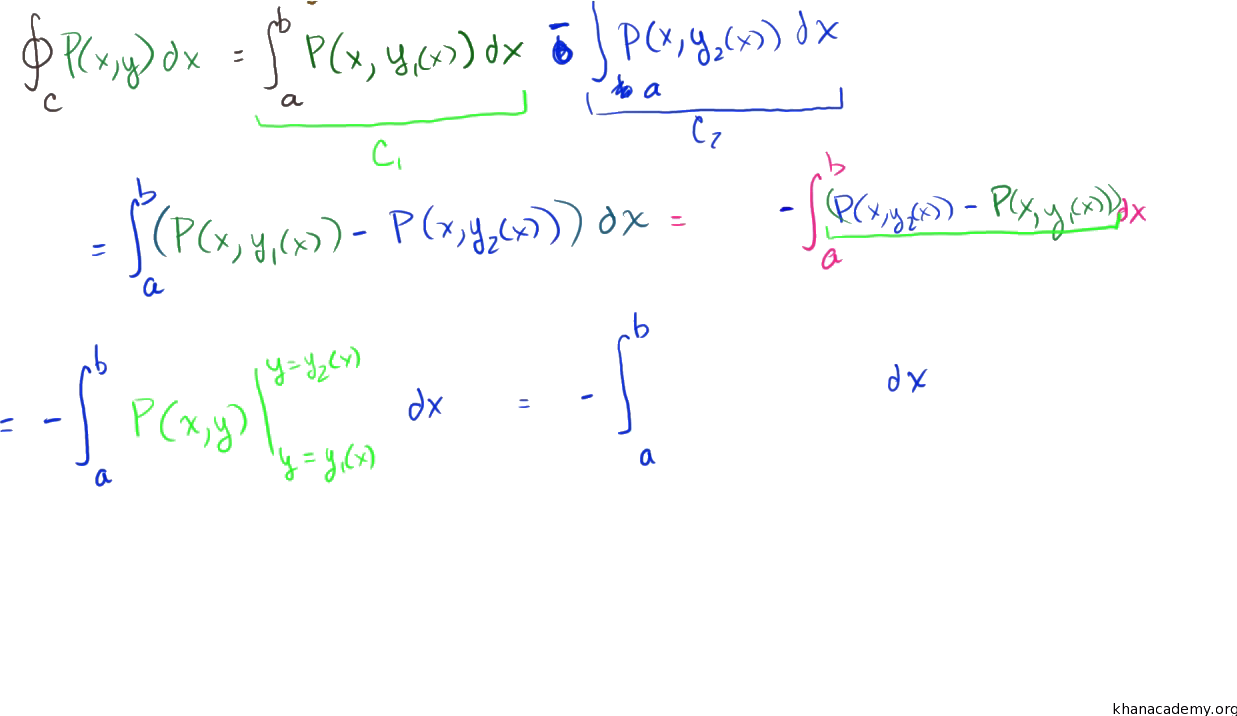 ∮_C P(x,y) dx = ∫_a^b P(x, y₁(x)) dx − ∫_a P(x, y₂(x)) dx
C₁ C₂
= ∫_a^b (P(x, y₁(x)) − P(x, y₂(x))) dx = − ∫_a^b (P(x, y₂(x)) − P(x, y₁(x))) dx
= − ∫_a^b P(x,y) |_{y = y₁(x)}^{y = y₂(x)} dx = − ∫_a^b dx
khanacademy.org